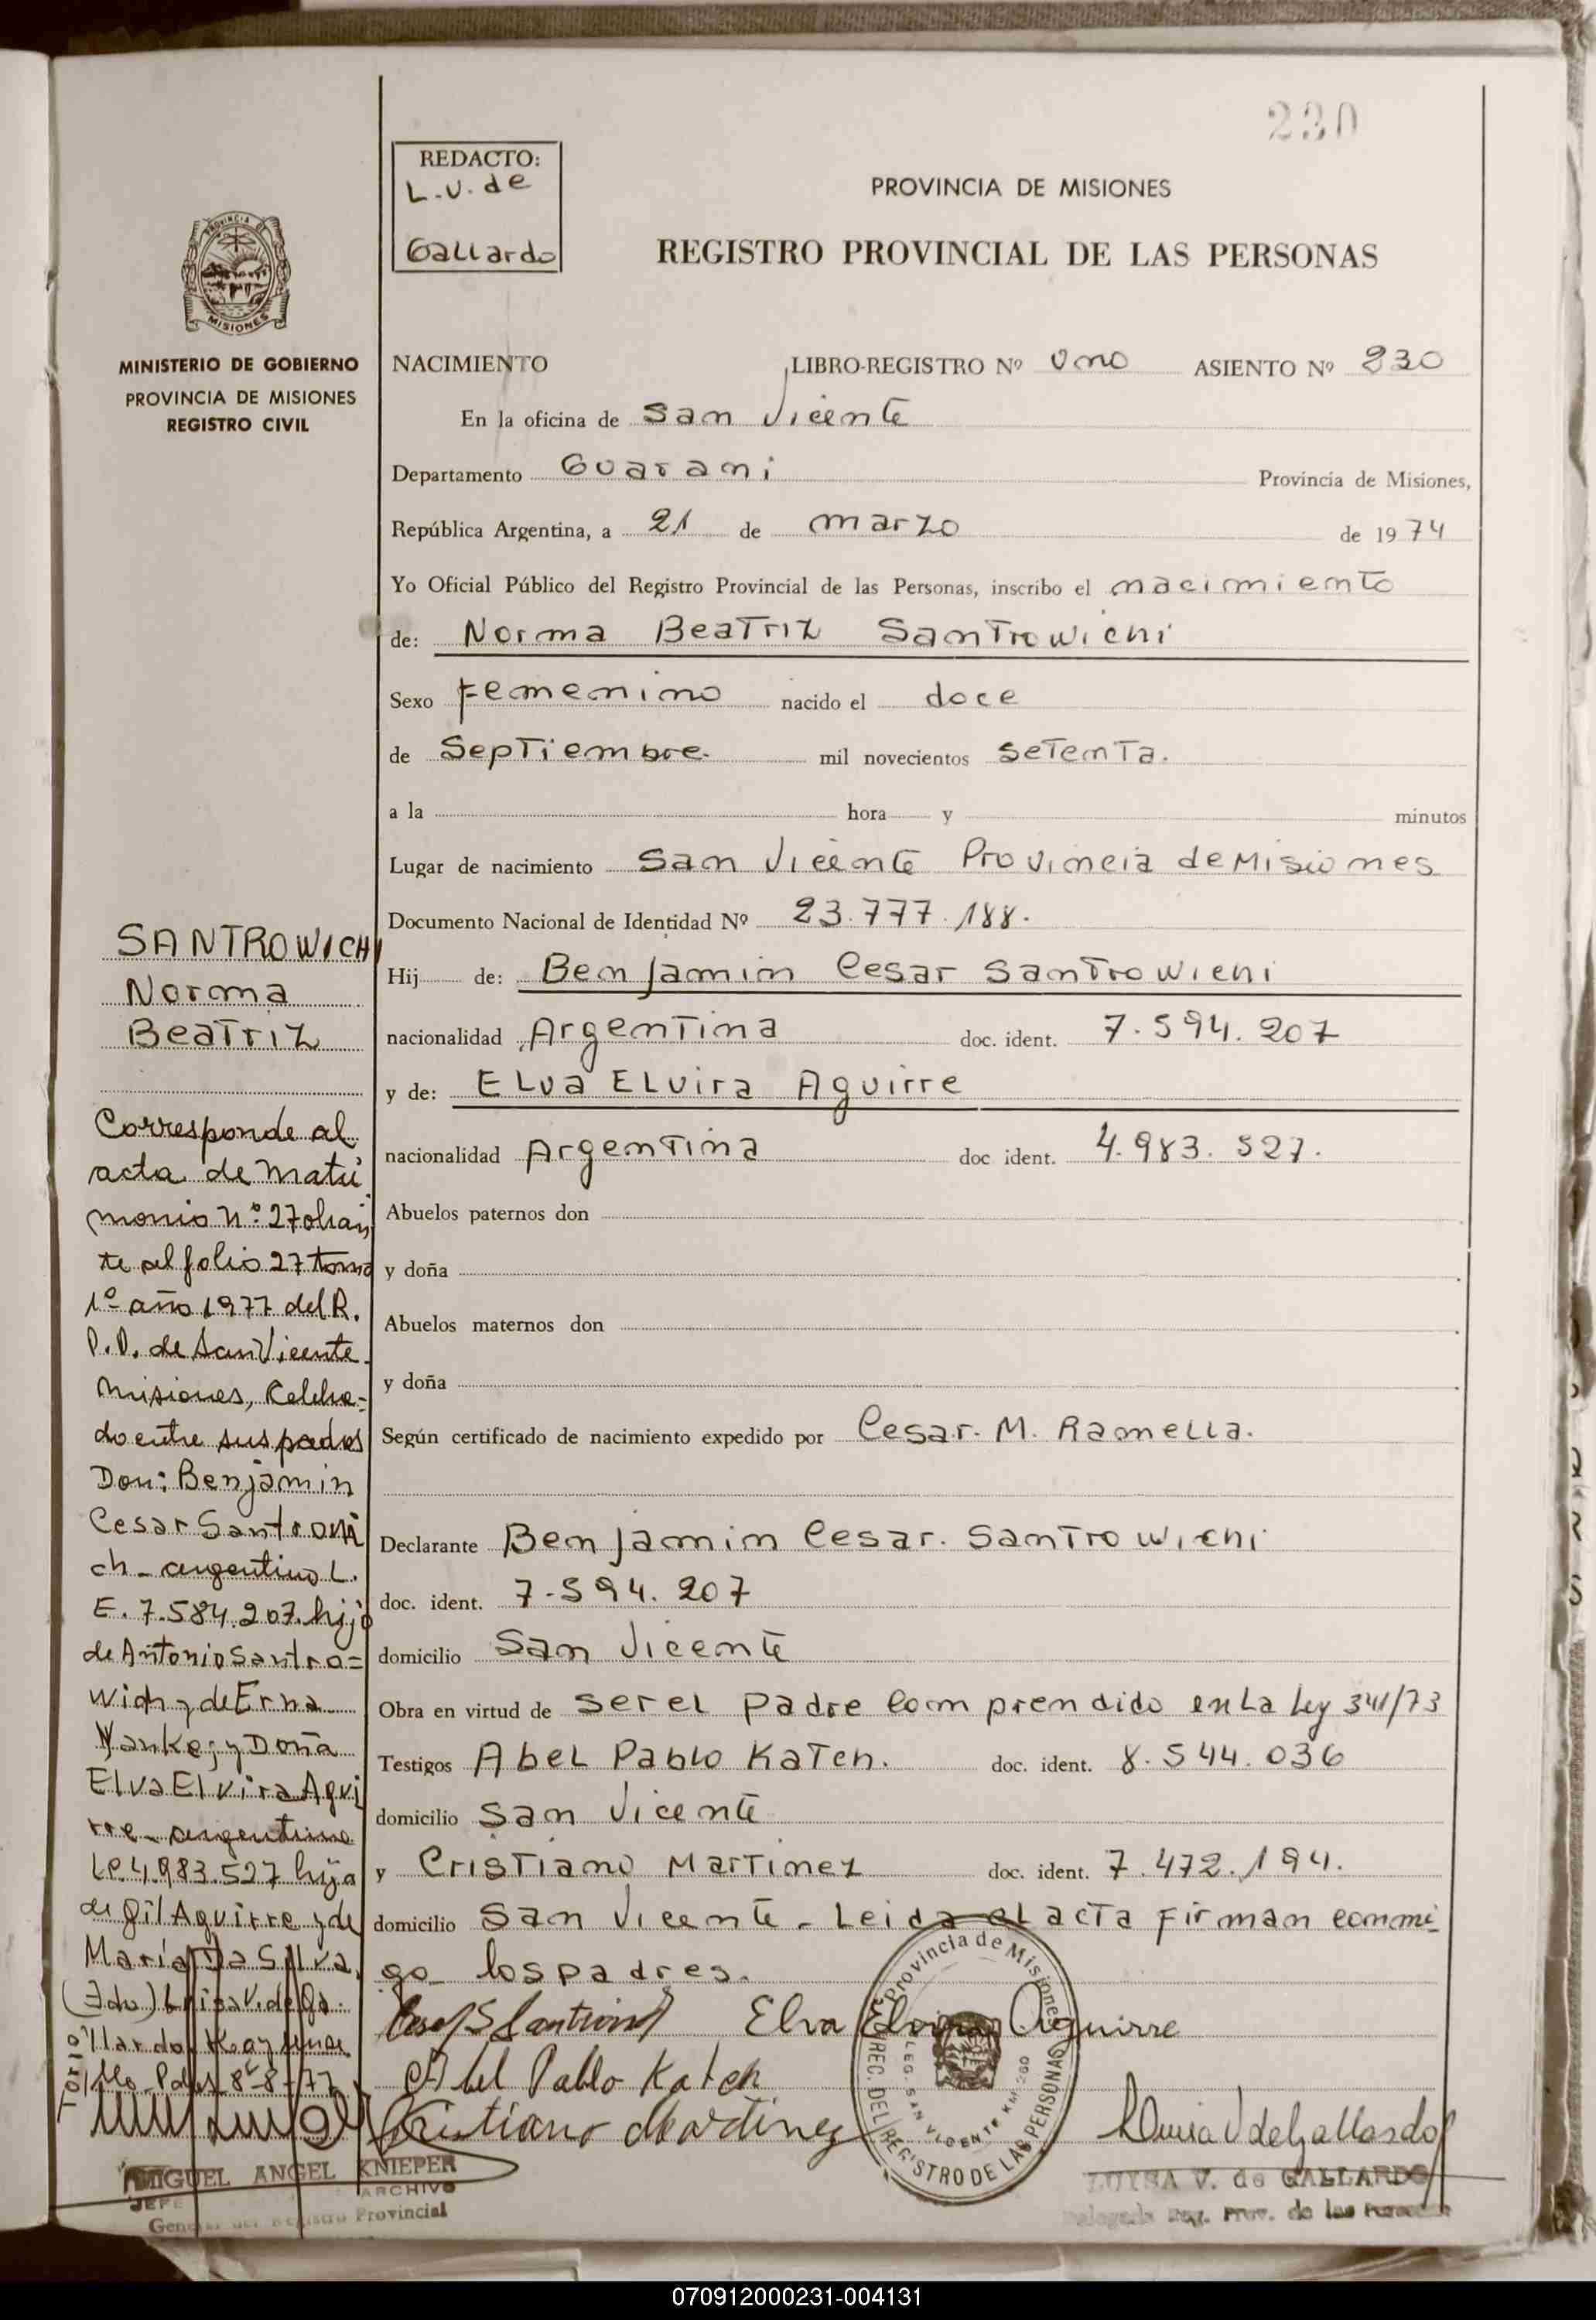 230
REDACTO:
L.V. de
Gallardo
PROVINCIA DE MISIONES
REGISTRO PROVINCIAL DE LAS PERSONAS
PROVINCIA
MISIONES
MINISTERIO DE GOBIERNO
PROVINCIA DE MISIONES
REGISTRO CIVIL
NACIMIENTO LIBRO-REGISTRO Nº Uno ASIENTO Nº 230
En la oficina de San Vicente
Departamento Guarani Provincia de Misiones,
República Argentina, a 21 de marzo de 1974
Yo Oficial Público del Registro Provincial de las Personas, inscribo el nacimiento
de: Norma Beatriz Santrowichi
Sexo Femenino nacido el doce
de Septiembre. mil novecientos setenta.
a la hora y minutos
Lugar de nacimiento San Vicente Provincia de Misiones
Documento Nacional de Identidad Nº 23.777.188.
Hij de: Benjamin Cesar Santrowichi
nacionalidad Argentina doc. ident. 7.594.207
y de: Elva Elvira Aguirre
nacionalidad Argentina doc ident. 4.983.527.
Abuelos paternos don
y doña
Abuelos maternos don
y doña
Según certificado de nacimiento expedido por Cesar. M. Ramella.
Declarante Benjamin Cesar. Santrowichi
doc. ident. 7.594.207
domicilio San Vicente
Obra en virtud de ser el padre comprendido en la Ley 341/73
Testigos Abel Pablo Katch. doc. ident. 8.544.036
domicilio San Vicente
y Cristiano Martinez doc. ident. 7.472.194.
domicilio San Vicente - Leida el acta firman conmi
go los padres.
Elva Elvira Aguirre
Abel Pablo Katch
Cristiano Martinez
Luisa V de Gallardo
LUISA V. de GALLARDO
Delegada Reg. Prov. de las Personas
Provincia de Misiones
REC. DEL REGISTRO DE LAS PERSONAS
SAN VICENTE KM. 260
SANTROWICHI
Norma
Beatriz
Corresponde al
acta de Matri
monio Nº 27 obran
te al folio 27 tomo
1º año 1977 del R.
P.P. de San Vicente
Misiones, Celebra=
do entre sus padres
Don: Benjamin
Cesar Santrowi
ch - argentino L.
E. 7.584.207. hijo
de Antonio Santro=
wich y de Erna
Yanke; y Doña
Elva Elvira Agui
rre - argentina
LC 4.983.527 hija
de Gil Aguirre y de
Maria Da Silva
(Fdo) Luisa V. de Ga
llardo. Hay un se
llo Pdas 8-8-77
MIGUEL ANGEL KNIEPER
JEFE ARCHIVO
General del Registro Provincial
070912000231-004131